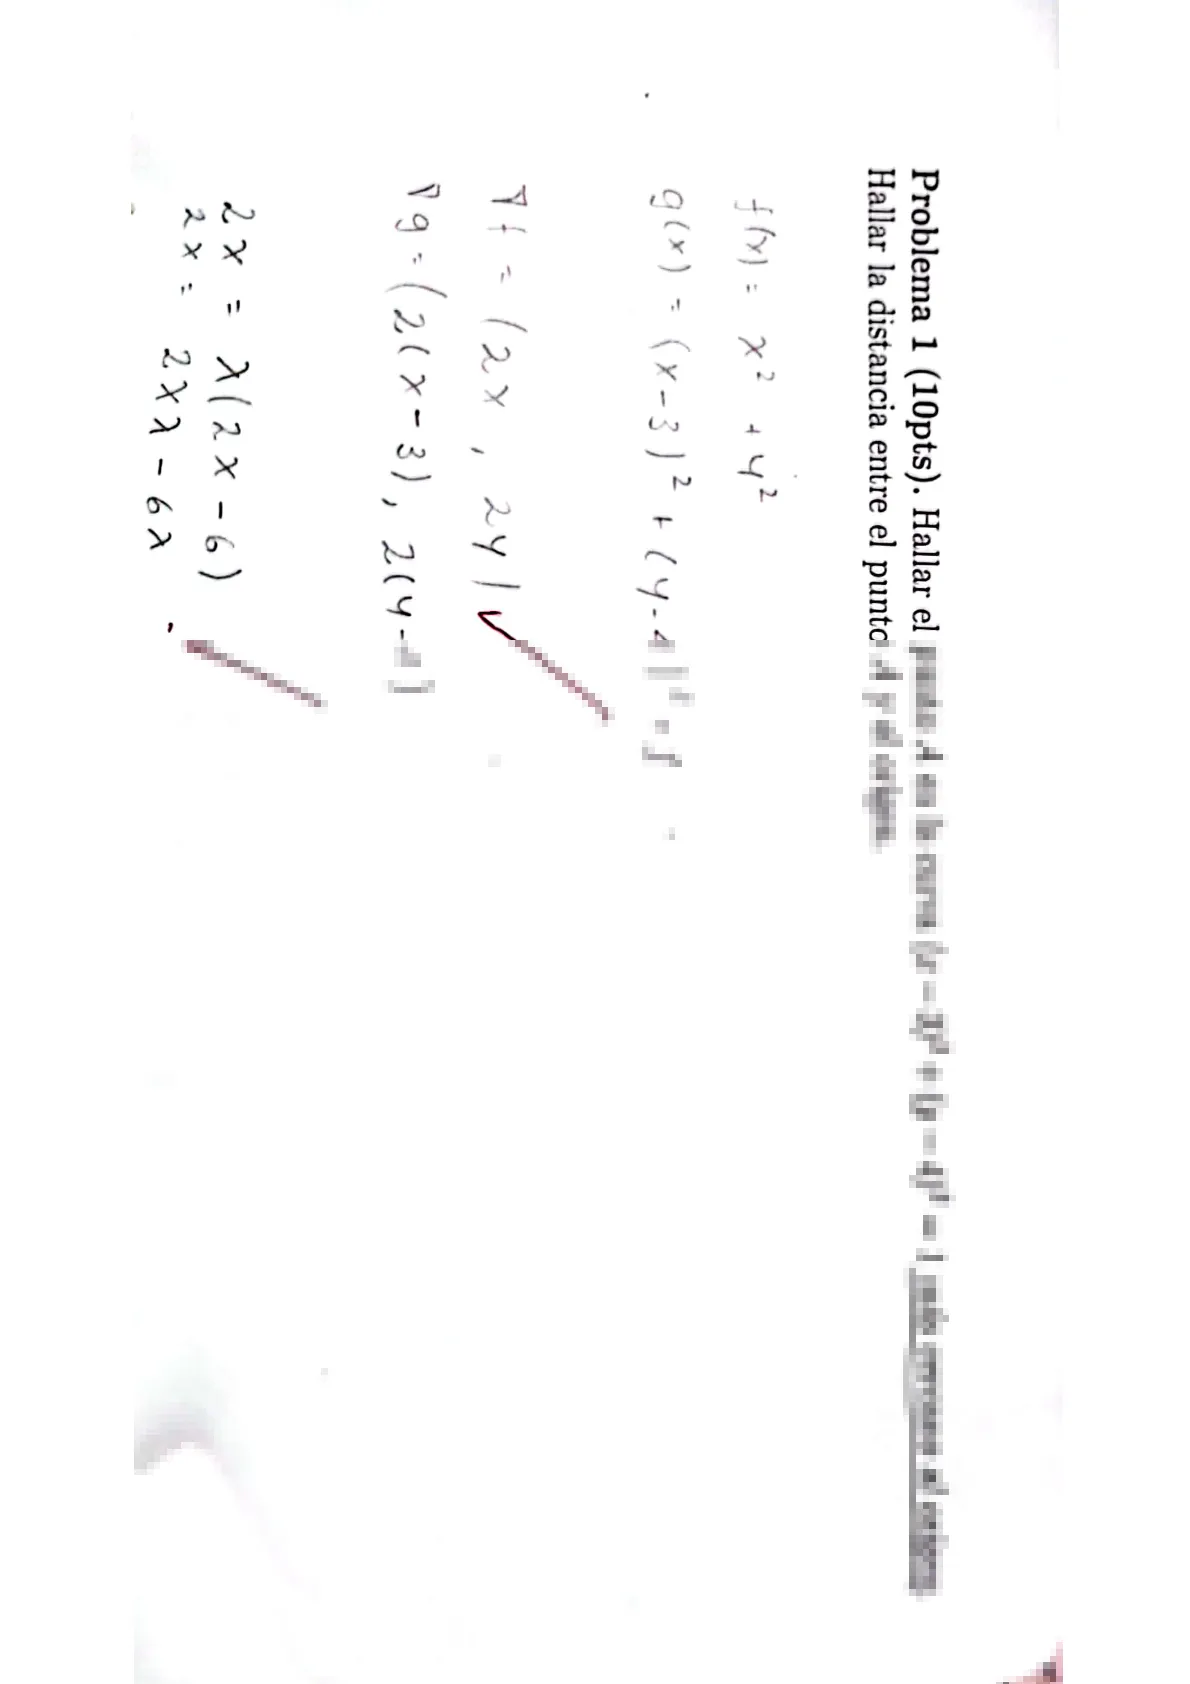 Problema 1 (10pts). Hallar el punto A en la curva (x − 3)² + (y − 4)² = 1 más cercano al origen.
Hallar la distancia entre el punto A y el origen.
f(x) = x² + y²
g(x) = (x-3)² + (y-4)² =
∇f = (2x, 2y)
∇g = (2(x-3), 2(y-4)
2x = λ(2x-6)
2x = 2xλ - 6λ